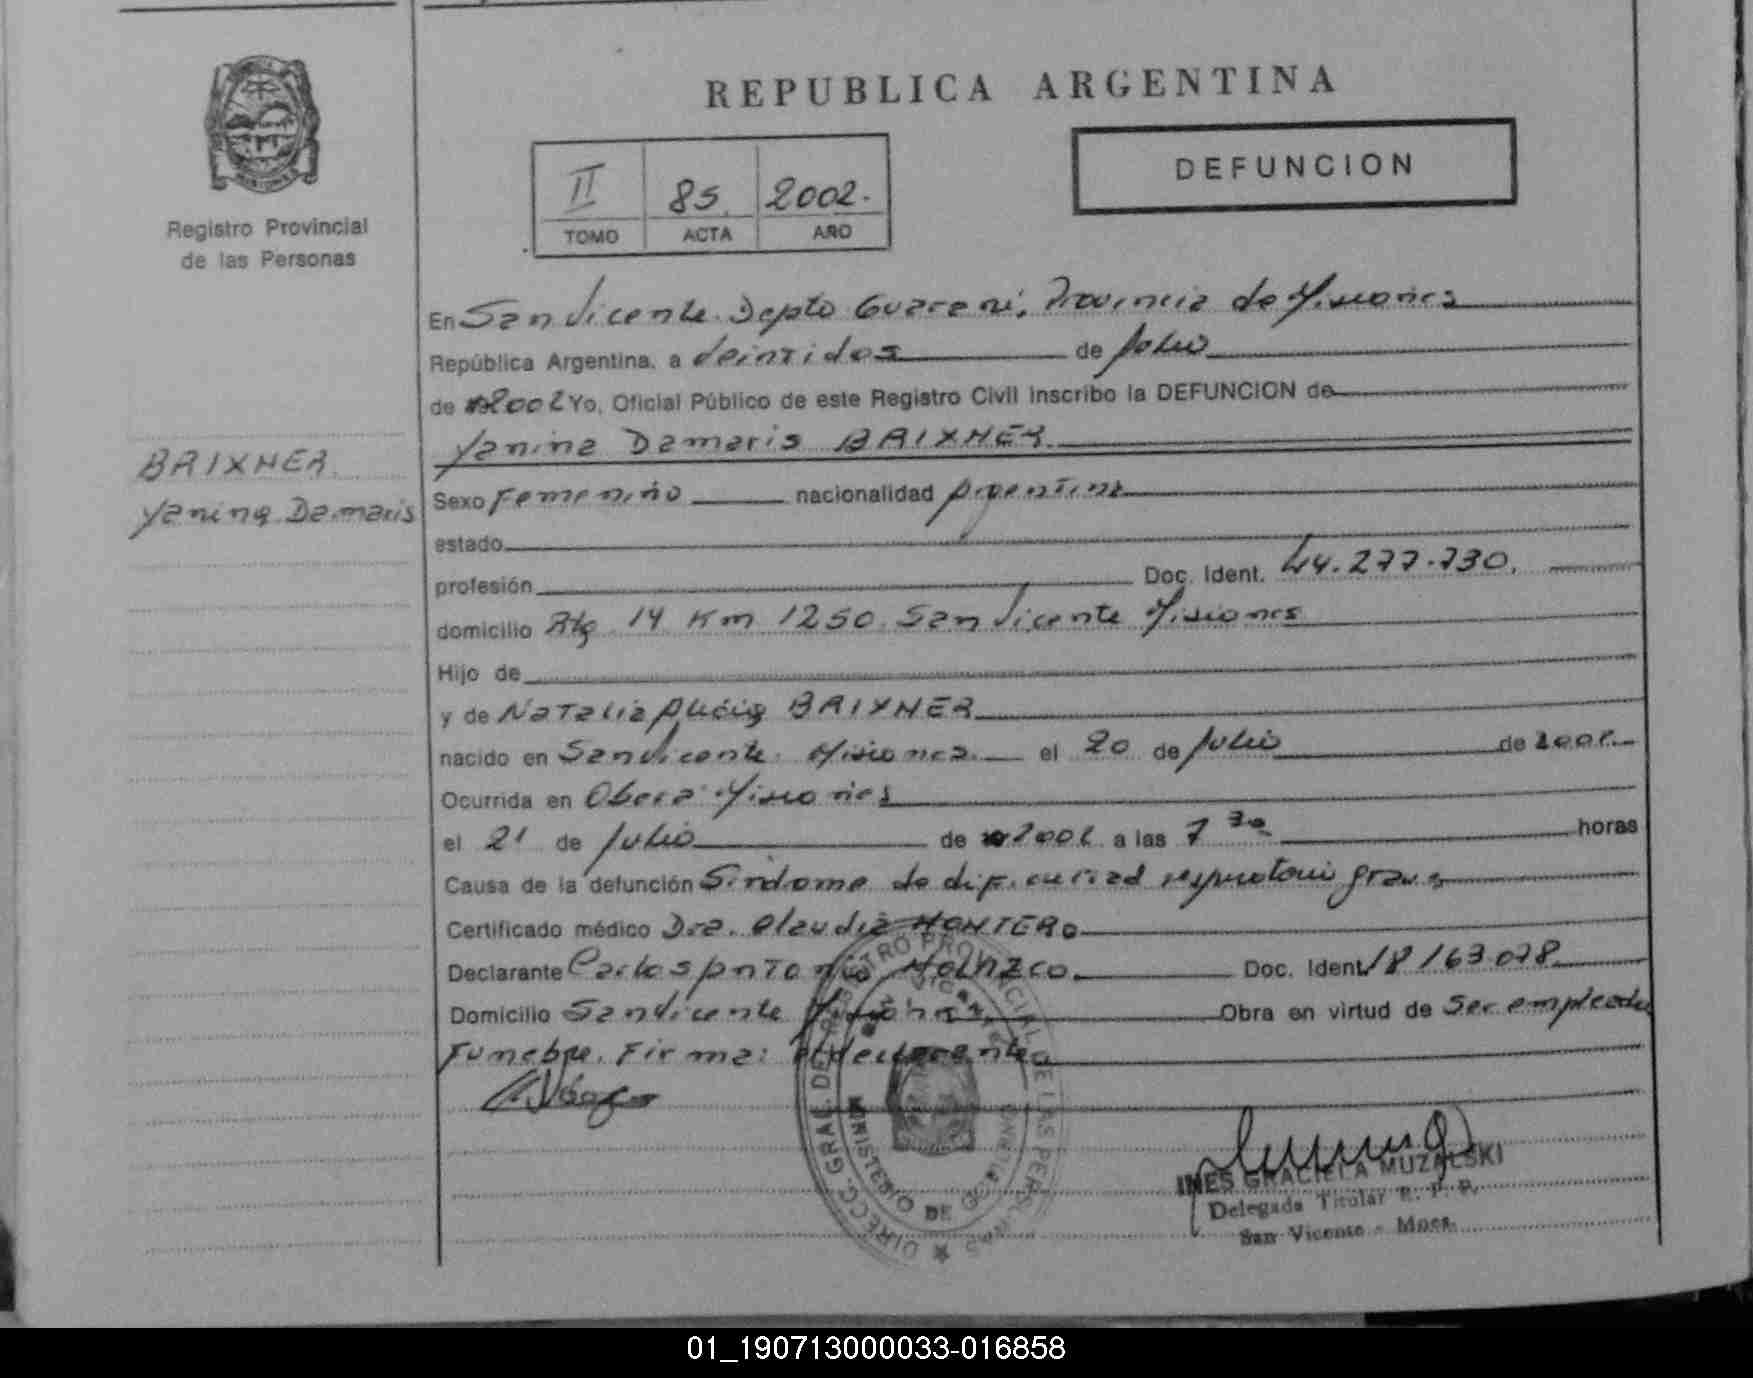 REPUBLICA ARGENTINA
II 85. 2002.
TOMO ACTA AÑO
DEFUNCION
Registro Provincial
de las Personas
BRIXNER
Yanina Damaris
En San Vicente. Depto Guarani, Provincia de Misiones
República Argentina, a Veintidos de Julio
de 2002 Yo, Oficial Público de este Registro Civil inscribo la DEFUNCION de
Yanina Damaris BRIXNER
Sexo Femenino nacionalidad Argentina
estado
profesión Doc. Ident. 44.277.730.
domicilio Rta 14 Km 1250. San Vicente Misiones
Hijo de
y de Natalia Alicia BRIXNER
nacido en San Vicente. Misiones. el 20 de Julio de 2002.
Ocurrida en Obera Misiones
el 21 de Julio de 2002 a las 7 30 horas
Causa de la defunción Sindome de dificultad respiratorio grave
Certificado médico Dra. Claudia MONTERO
Declarante Carlos Antonio Doc. Ident. 18163.078
Domicilio San Vicente Misiones Obra en virtud de Ser empleado
Funebre. Firma: el declarante
DIRECC. GRAL. DEL REGISTRO PROVINCIAL DE LAS PERSONAS
MINISTERIO DE GOBIERNO
INES GRACIELA MUZALSKI
Delegada Titular R. P. P.
San Vicente - Mnes.
01_190713000033-016858